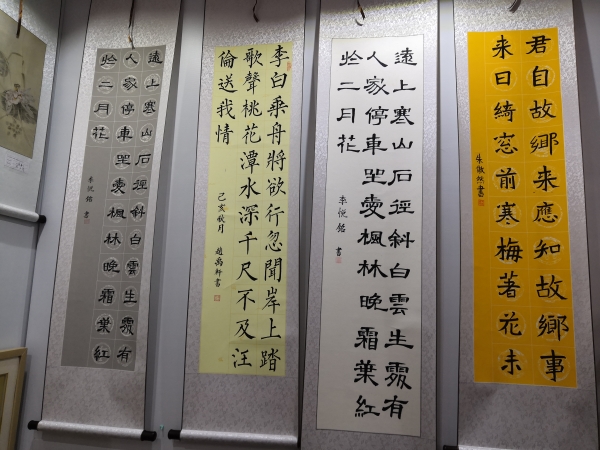 君自故鄉來應知故鄉事
来日綺窓前寒梅著花未
遠上寒山石徑斜白雲生處有
人家停車坐愛楓林晚霜葉紅
於二月花
李悦銘 書
李白乘舟將欲行忽聞岸上踏
歌聲桃花潭水深千尺不及汪
倫送我情
己亥秋月 趙禹軒書
遠上寒山石徑斜白雲生處有
人家停車坐愛楓林晚霜葉紅
於二月花
李悦銘 書